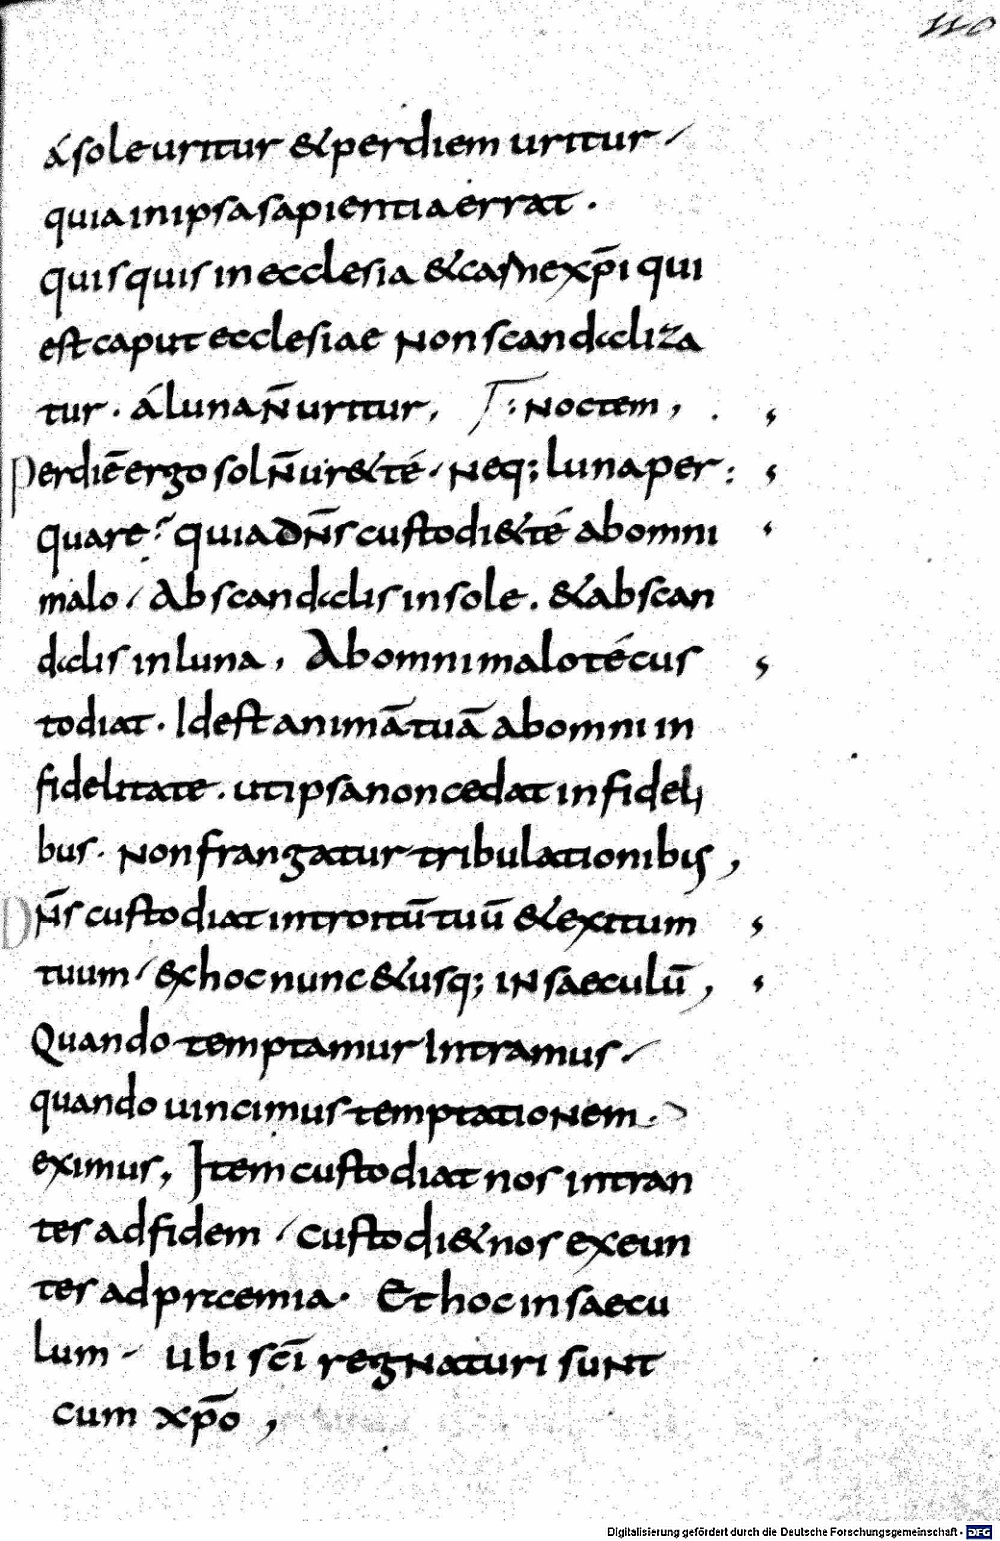 110
á sole uritur & per diem uritur /
quia in ipsa sapientia errat .
quisquis in ecclesia & carne xp̄i qui
est caput ecclesiae Non scandaliza
tur . á luna N̄ uritur, : Noctem , . ,
Per diē ergo sol N̄ ur& té / Neq; luna per : ,
quare ? quia dN̄s custodi& té ab omni ,
malo / Ab scandalis in sole . & ab scan
dalis in luna , Ab omni malo té cus ,
todiat . Id est animā tuā ab omni in
fidelitate . ut ipsa non cedat infideli
bus . Non frangatur tribulationibus ,
DN̄s custodiat introitū tuū & exitum ,
tuum / & hoc nunc & usq; iN saeculū , ,
Quando temptamur Intramus /
quando uincimus temptatioNem .
eximus, Item custodiat nos intran
tes ad fidem / custodi& nos exeun
tes ad premia . Et hoc in saecu
lum / Ubi sc̄i regNaturi suNt
cum xp̄o ,
Digitalisierung gefördert durch die Deutsche Forschungsgemeinschaft - DFG